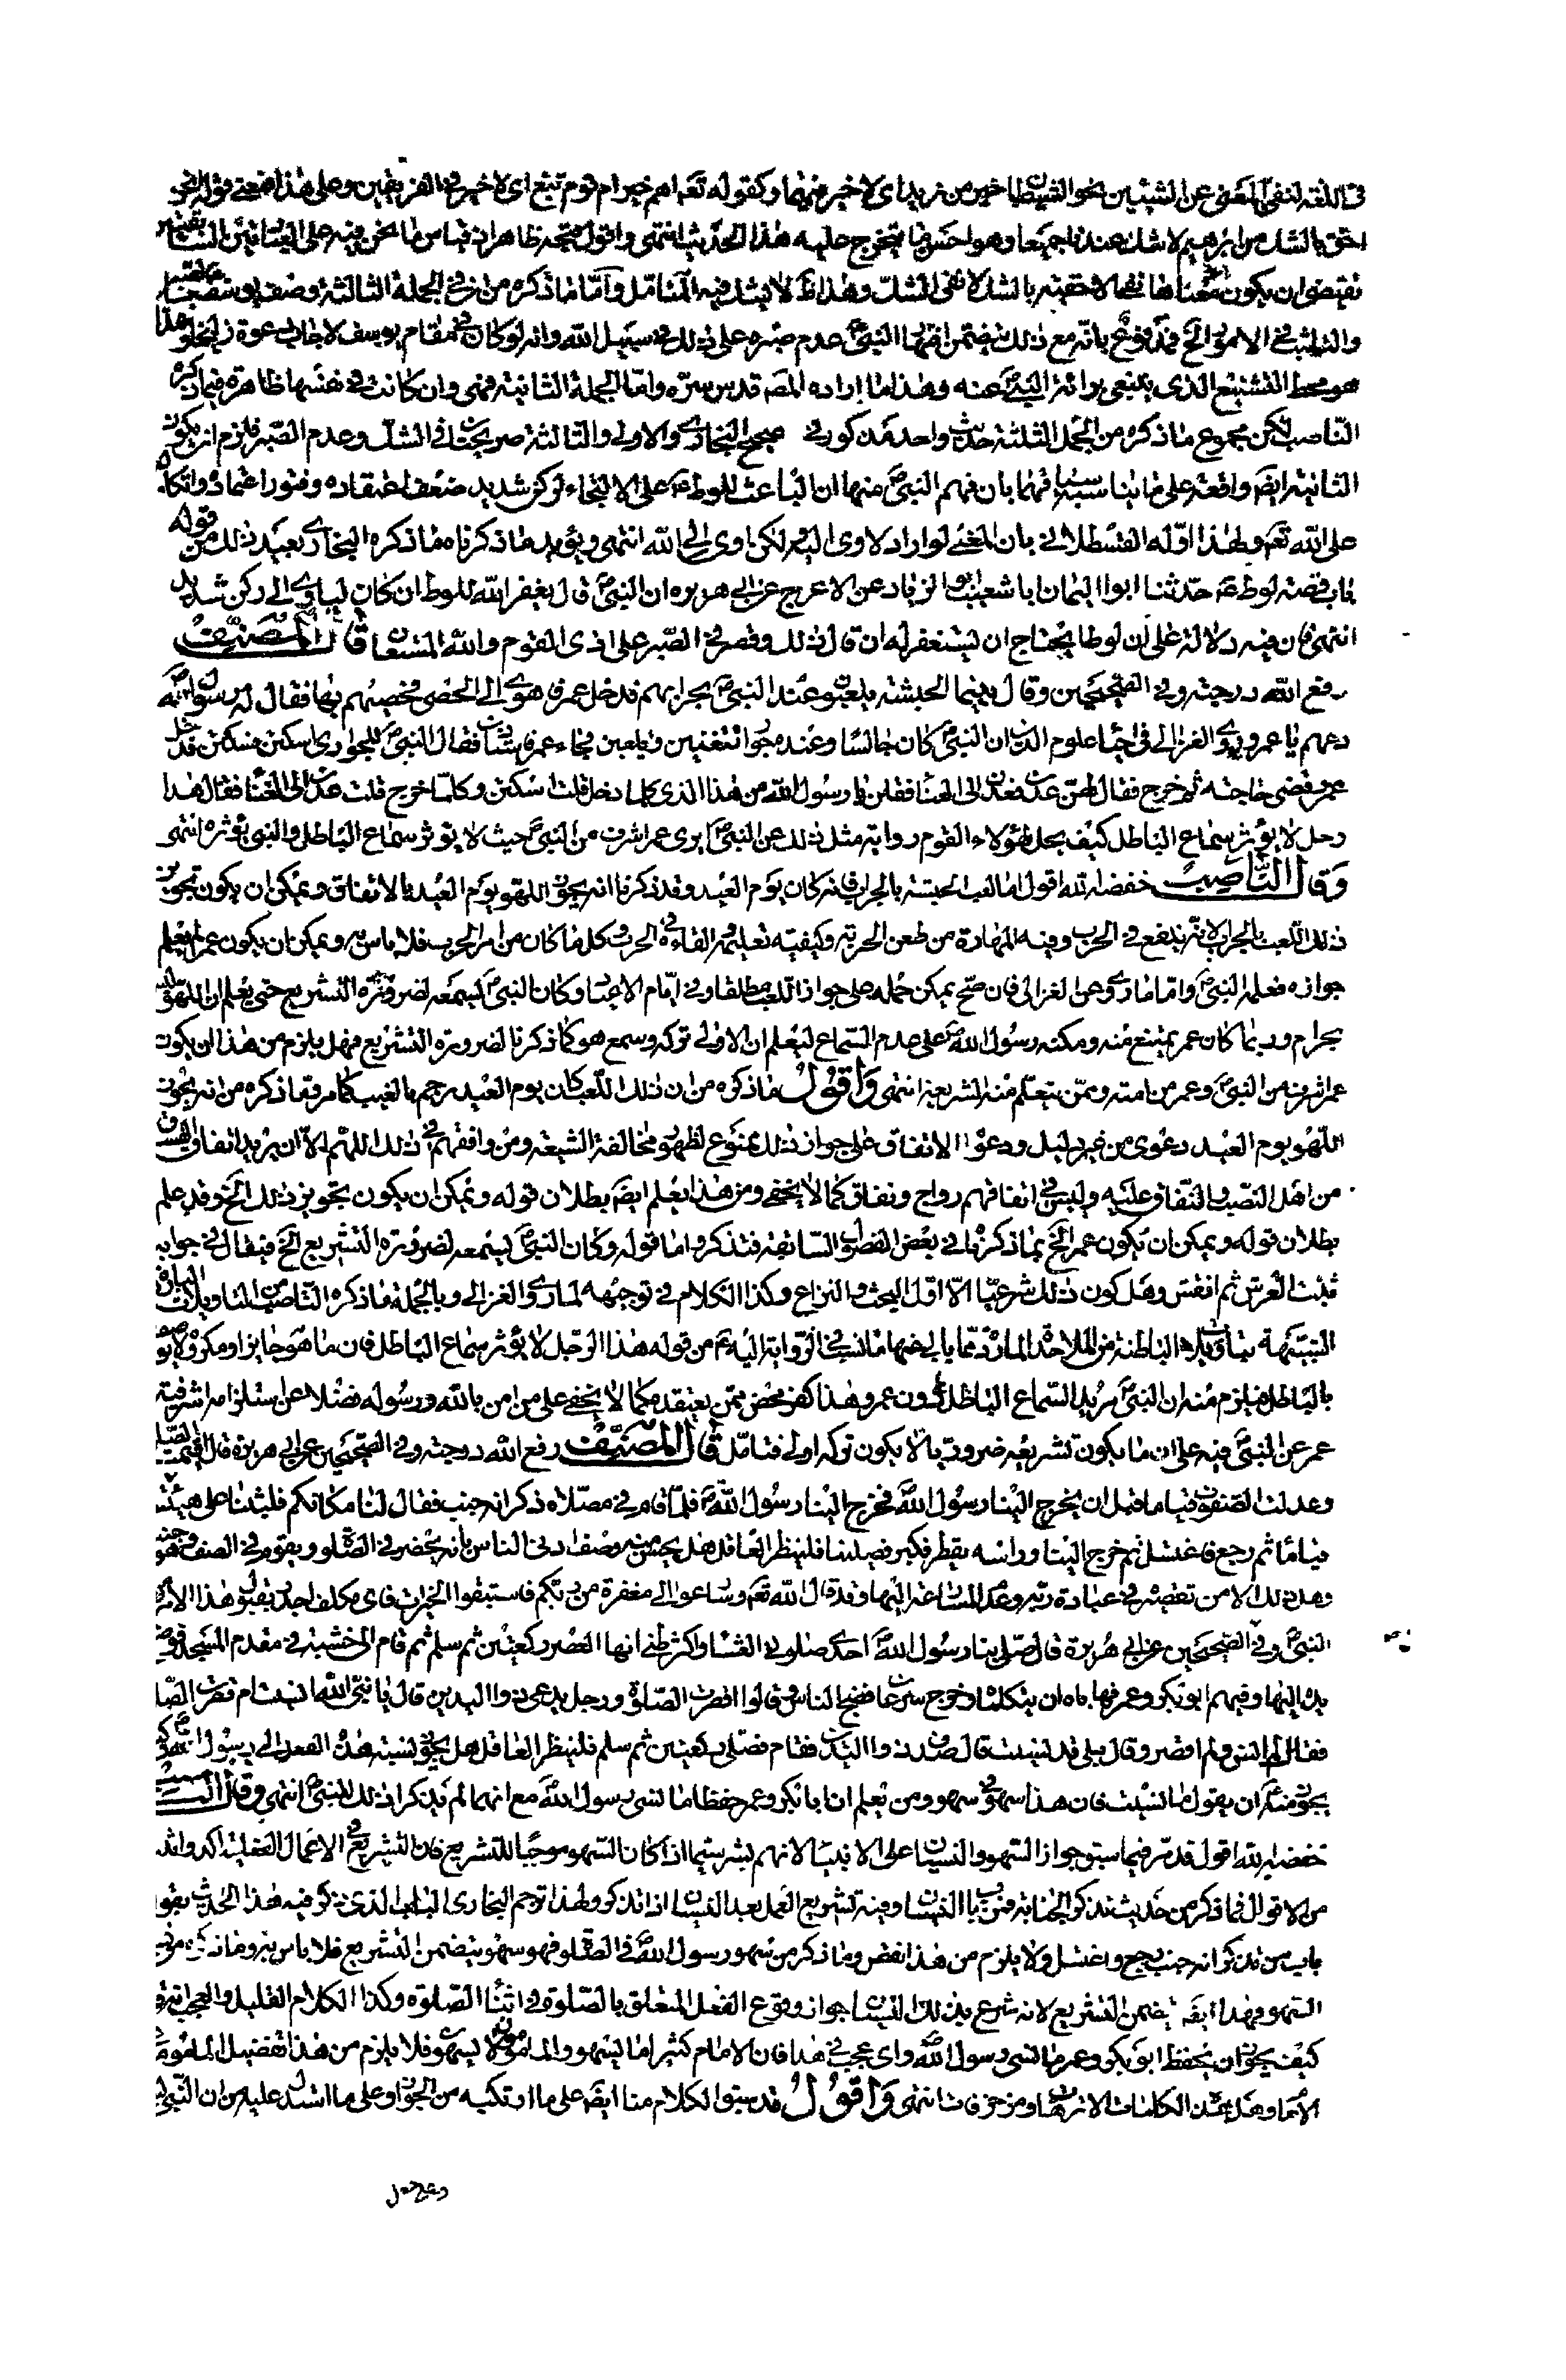 في اللغة لنفي المعنى عن الشيئين نحو الشيطان خير من زيد اى لا خير فيهما وكقوله تعالى اهم خير ام قوم تبع اى لا خير في الفريقين وعلى هذا فمعنى قوله نحن
احق بالشك من ابرهيم لا شك عندنا جميعا وهو احسن ما يتخرج عليه هذا الحديث انتهى واقول يتجه ظاهرا قياس ما نحن فيه على المثالين السابقين
نقيضى ان يكون معناها نفى الاحقية بالشك لا نفى الشك وهذا لا يشك فيه المتأمل وامّا ما ذكره من ان في الجملة الثالثة وصف يوسف
والتثبت في الامور الخ فمدفوع بانه مع ذلك يتضمن اقرار النبي عدم صبره على ذلك في سبيل الله وانه لو كان في مقام يوسف لاجاب دعوة زليخا وهذا
هو محط التشنيع الذى ينبغى براءة النبي عنه وهذا ما اراده المصـ قدس سره وامّا الجملة الثانية فهى وان كانت في نفسها ظاهرة فيما ذكره
النّاصب لكن مجموع ما ذكره من الجمل الثلثة حديث واحد مذكور في صحيح البخارى والاولى والثالثة صريحتان في الشك وعدم الصّبر فيلزم ان يكون
الثانية ايضـ واقعة على ما يناسبهما بان نفهم النبي منها ان الباعث للوط على الالتجاء لركن شديد ضعف اعتقاده وفتور اعتماده واتكاله
على الله تعـ ولهذا اوّله القسطلانى بان المعنى لو اراد لاوى اليها ولكن اوى الى الله انتهى ويؤيد ما ذكرناه ما ذكره البخارى بعيد ذلك من قوله
باب قصة لوط حدّثنا ابو اليمان انا شعيب انا ابو الزناد عن الاعرج عن ابى هريره ان النبي قال يغفر الله للوط ان كان لياوى الى ركن شديد
انتهى فان فيه دلالة على ان لوطا يحتاج ان يستغفر له ان قال ذلك وقصر في الصّبر على اذى القوم والله المستعان قال المصنّف
رفع الله درجته وفي الصحيحين وقال بينما الحبشة يلعبون عند النبي بحرابهم فدخل عمر فاهوى الى الحصى فحصبهم بها فقال له رسول الله
دعهم يا عمر وروى الغزالى في احياء علوم الدين ان النبي كان جالسا وعنده جوار تتغنين ويلعبن فجاء عمر فاستاذن فقال النبي للجوارى اسكتن فسكتن فدخل
عمر وقضى حاجته ثم خرج فقال لهنّ عدن فعدن الى الغناء فقلن يا رسول الله من هذا الذى كلما دخل قلت اسكتن وكلّما خرج قلت عدن الى الغناء فقال هذا
رجل لا يؤثر سماع الباطل كيف يحل لهؤلاء القوم رواية مثل ذلك عن النبي ايرى عمر اشرف من النبي حيث لا يؤثر سماع الباطل والنبي يؤثره انتهى
وقال النّاصب خفضه الله اقول امّا لعب الحبشة بالحراب فانه كان يوم العيد وقد ذكرنا انه يجوز اللهو يوم العيد بالاتفاق ويمكن ان يكون تجويز
ذلك اللعب بالحراب لانه ينفع في الحرب وفيه المهارة من طعن الحربة وكيفية تعليمه والقاءه في الحرب وكل ما كان من امر الحرب فلا باس به ويمكن ان يكون عمر لم يعلم
جوازه فعلمه النبي وامّا ما روى عن الغزالى فان صحّ يمكن حمله على جواز اللعب مطلقا وفي ايّام الاعياد وكان النبي يسمعه لضرورة التشريع حتى يعلم ان اللهو ليس
بحرام وربما كان عمر يمتنع منه ومكنه رسول الله على عدم السّماع ليعلم ان الاولى تركه وسمع هو كما ذكرنا لضرورة التشريع فهل يلزم من هذا ان يكون
عمر اشرف من النبي وعمر من امته وممّن يتعلّم منه الشريعة انتهى واقول ما ذكره من ان ذلك اللّعب كان يوم العيد رجم بالغيب كما مر وما ذكره من انه يجوز
اللّهو يوم العيد دعوى من غير دليل ودعوى الاتفاق على جواز ذلك ممنوع لظهور مخالفة الشيعة ومن وافقهم في ذلك اللهم الا ان يريد اتفاق الفساق
من اهل النصب والنّفاق عليه وليس في اتفاقهم رواج ونفاق كما لا يخفى ومن هذا يعلم ايضـ بطلان قوله ويمكن ان يكون تجويز ذلك الخ وقد علم
بطلان قوله ويمكن ان يكون عمر الخ بما ذكرنا في بعض الفصول السّابقة فتذكر وامّا قوله وكان النبي يسمعه لضرورة التشريع الخ فيقال في جوابه
ثبت العرش ثم انقش وهل كون ذلك شرعيّا الّا اوّل البحث والنزاع وكذا الكلام في توجيهه لما روى الغزالى وبالجملة ما ذكره النّاصب من التاويلات الباردة
الشبيهة بتاويلات الباطنة من الملاحدة المارّة ممّا يابى عنها ما نسب في الرّواية اليه من قوله هذا الرّجل لا يؤثر سماع الباطل فان ما هو جايز او مكروه لا يوصف
بالباطل فيلزم منه ان النبي مريد السماع الباطل دون عمر وهذا كفر محض ممّن يعتقده كما لا يخفى على من امن بالله ورسوله فضلا عن استلزامه اشرفية
عمر عن النبي فيه على ان ما يكون تشريعه ضروريّا لا يكون تركه اولى فتامّل قال المصنّف رفع الله درجته وفي الصّحيحين عن ابى هريرة قال اقيمت الصلوة
وعدلت الصّفوف قياما قبل ان يخرج الينا رسول الله فخرج الينا رسول الله فلمّا قام في مصلّاه ذكر انه جنب فقال لنا مكانكم فلبثنا على هيئتنا
قياما ثم رجع فاغتسل ثم خرج الينا وراسه يقطر فكبر فصلينا فلينظر العاقل هل يحسن منه وصف ادنى الناس بانه يحضر في الصّلوة ويقوم في الصف وهو جنب
وهل ذلك الا من تقصيره في عبادة ربّه وعدم المسارعة اليها وقد قال الله تعـ وسارعوا الى مغفرة من ربّكم فاستبقوا الخيرات فاى مكلف اجدر بقبول هذا الامر من
النبي وفي الصّحيحين عن ابى هريرة قال صلى بنا رسول الله احدى صلوتى العشاء واكثر ظنى انها العصر ركعتين ثم سلم ثم قام الى خشبة في مقدم المسجد فوضع
يده اليها وفيهم ابو بكر وعمر فهاباه ان يتكلماه وخرج سرعا فضج الناس وقالوا اقصرت الصّلوة ورجل يدعى ذو اليدين قال يا نبىّ الله انسيت ام قصرت الصّلوة
فقال لم انس ولم اقصر وقال بلى قد نسيت قال صدق ذو اليدين فقام فصلى ركعتين ثم سلم فلينظر العاقل هل يجوز نسبة هذا الفعل الى رسول الله وكيف
يجوز منه ان يقول ما نسيت فان هذا سهو في سهو ومن يعلم ان ابا بكر وعمر حفظا ما نسى رسول الله مع انهما لم يذكرا ذلك للنبي انتهى وقال النّاصب
خفضه الله اقول قد مرّ فيما سبق جواز السّهو والنسيان على الانبياء لانهم بشر سيّما اذا كان السّهو موجبا للتشريع فان التشريع في الاعمال الفعلية اكد واثبت
من الاقوال فما ذكر من حديث تذكر الجنابة فمن باب النسيان وفيه تشريع العمل بعد النسيان اذا تذكر ولهذا ترجم البخارى الباب الذى ذكر فيه هذا الحديث بقوله
باب من تذكر انه جنب رجع واغتسل ولا يلزم من هذا نقص وما ذكر من سهو رسول الله في الصّلوة فهو سهو يتضمن التشريع فلا باس به وما ذكر من
السّهو فهذا ايضـ يتضمن التشريع لانه شرع بذلك النسيان جواز وقوع الفعل المتعلق بالصّلوة في اثناء الصّلوة وكذا الكلام القليل والعجب انه
كيف يجوز ان يحفظ ابو بكر وعمر ما نسى رسول الله واى عجب في هذا فان الامام كثيرا ما يسهو والمامومون لا يسهون فلا يلزم من هذا تفضيل الماموم على
الامام وهل هذه الكلمات الا ترهات ومزخرفات انتهى واقول قد سبق الكلام منا ايضـ على ما ارتكبه من الجواز وعلى ما استدل عليه من ان النبي